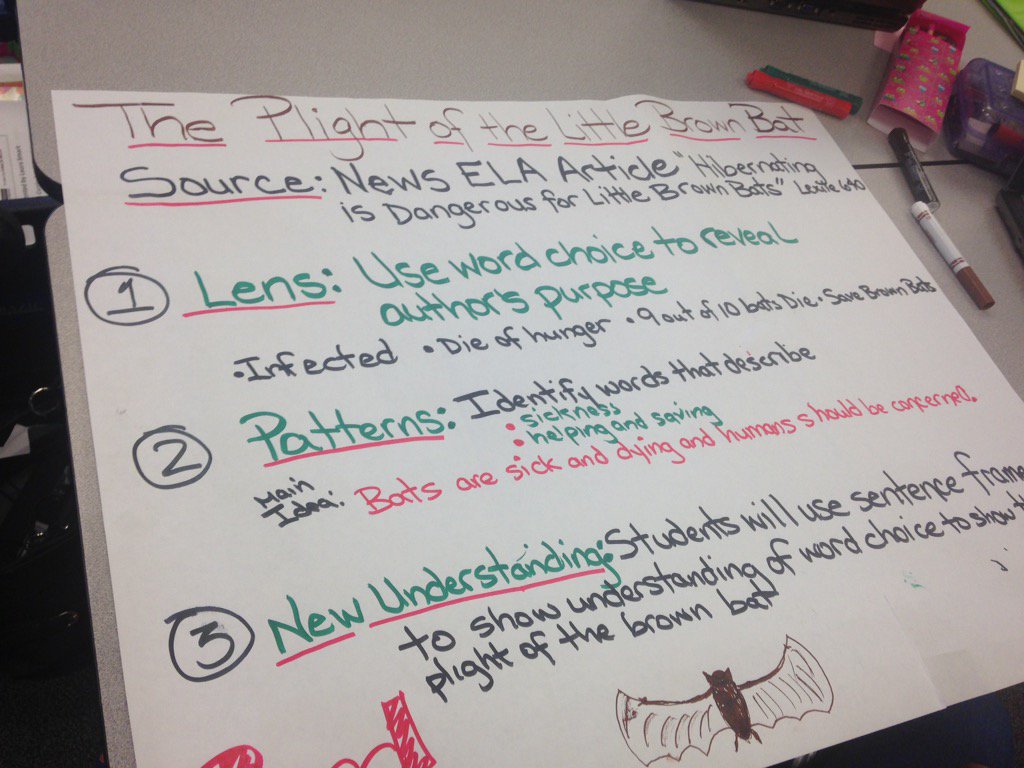 The Plight of the Little Brown Bat
Source: News ELA Article "Hibernating
is Dangerous for Little Brown Bats" Lexile 690
1 Lens: Use word choice to reveal
author's purpose
• Infected • Die of hunger • 9 out of 10 bats Die • Save Brown Bats
2 Patterns: Identify words that describe
• sickness
• helping and saving
Main
Idea: Bats are sick and dying and humans should be concerned.
3 New Understanding: Students will use sentence frame
to show understanding of word choice to show th
plight of the brown bat